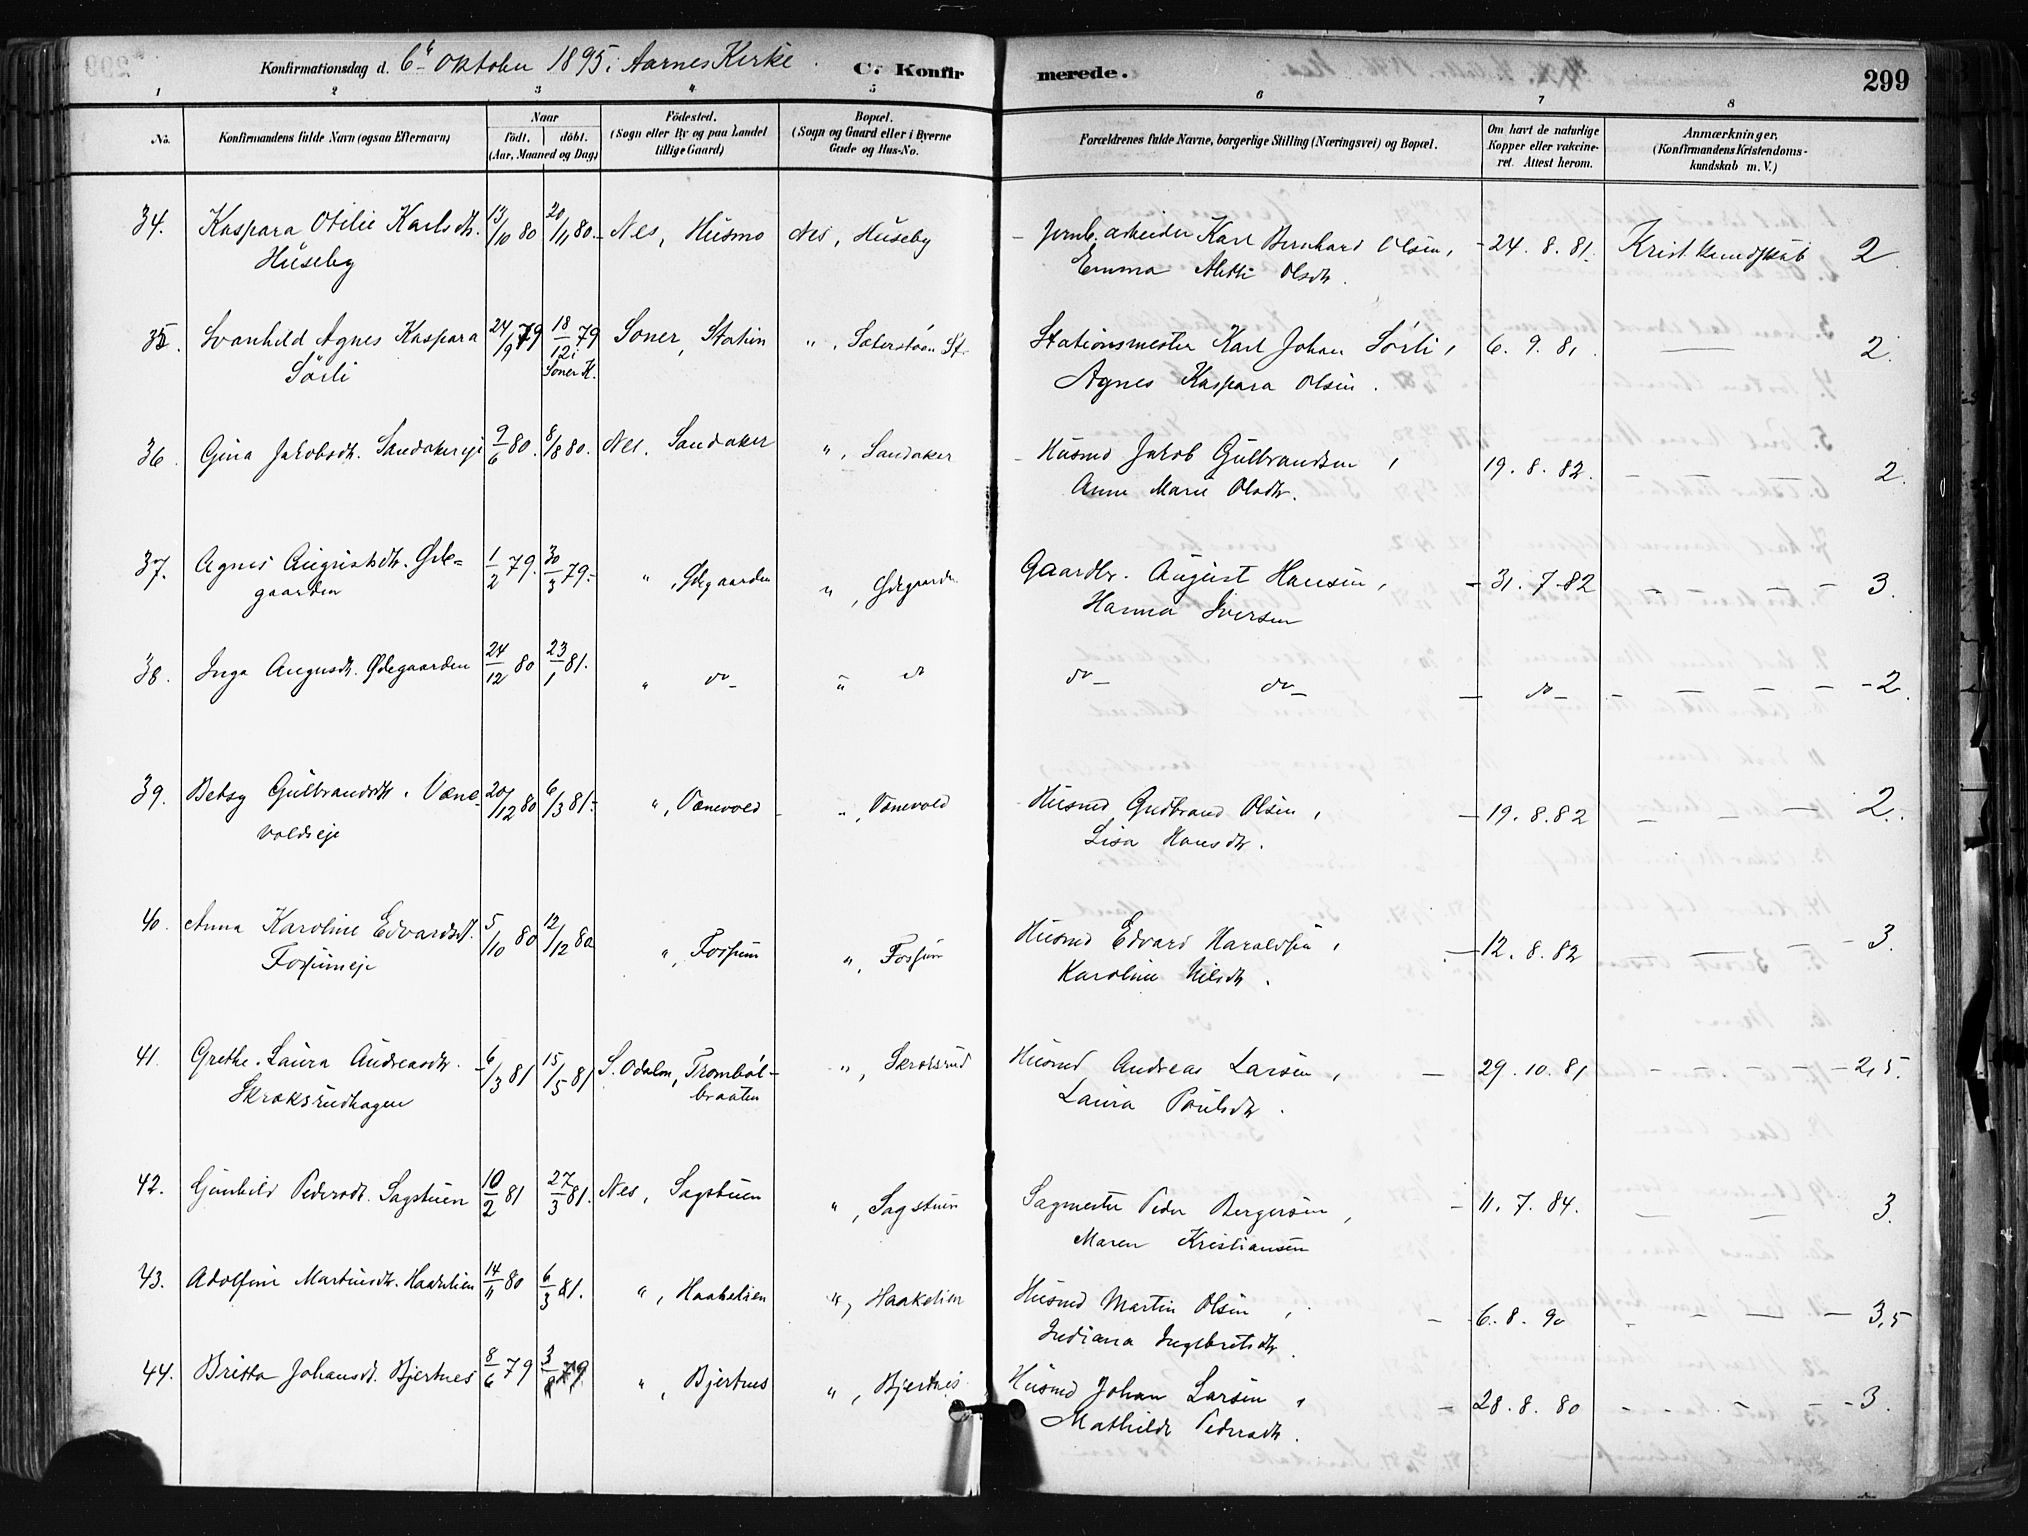 Konfirmationsdag d. 6te Oktober 1895 i Aarnes Kirke. C. Konfirmerede. 299
1 2 3 4 5 6 7 8
No. Konfirmandens fulde Navn (ogsaa Efternavn) Naar født. døbt. (Aar, Maaned og Dag) Fødested. (Sogn eller By og paa Landet tillige Gaard) Bopæl. (Sogn og Gaard eller i Byerne Gade og Hus-No. Forældrenes fulde Navne, borgerlige Stilling (Næringsvei) og Bopæl. Om havt de naturlige Kopper eller vakcineret. Attest herom. Anmærkninger, (Konfirmandens Kristendomskundskab m. V.)
34. Kaspara Otilie Karlsdt. 13/10 80 20/11 80 Nes, Husmo Nes, Huseby Jernb.arbeider Karl Bernhard Olsen, 24. 8. 81. Krist. kundskab 2.
Huseby Emma Olsdt.
35. Svanhild Agnes Kaspara 24/9 79 18/12 79 Soner, Station " , Sæterstøen St. Stationsmester Karl Johan Sørli, 6. 9. 81. — 2.
Sørli i Soner K. Agnes Kaspara Olsen.
36. Gina Jakobsdt. Sandakereje 9/6 80. 8/8 80. Nes. Sandaker " , Sandaker Husmd Jakob Gulbrandsen, 19. 8. 82. — — 2.
Anne Marie Olsdtr.
37. Agnes Augustsdtr. Øde- 1/2 79. 30/3 79. " , Ødegaarden " , Ødegaarden Gaardbr. August Hansen, 31. 7. 82 — — — — 3.
gaarden Hanna Iversen
38. Inga Augusdt. Ødegaarden 24/12 80 23/1 81. " do " do do do — do — — — — — 2.
39. Betsy Gulbrandsdt. Væne- 20/12 80 6/3 81. " , Vænevold " , Vænevold Husmd Gudbrand Olsen, 19. 8. 82 — — — 2.
voldseje Lisa Hansdtr.
40. Anna Karoline Edvardsdt. 5/10 80 12/12 80 " , Fossum " , Fossum Husmd Edvard Haraldsen, 12. 8. 82 — — — 3.
Fossumeje Karoline Nilsdtr.
41. Grethe Laura Andreasdtr. 6/3 81 15/5 81 S. Odalen, Trombøl- " , Skraksrud Husmd Andreas Larsen, 29. 10. 81 — — — — 2,5.
Skraksrudhagen braaten Laura Poulsdtr.
42. Gunhild Pedersdt. Sagstuen 10/2 81 27/3 81. Nes, Sagstuen " , Sagstuen Sagmester Peder Bergersen, 11. 7. 84. — — 3.
Maren Kristiansen
43. Adolfine Martinsdtr. Haakelien 14/11 80 6/3 81. " , Haakelien " , Haakelien Husmd Martin Olsen, 6. 8. 90 — — — — 3,5
Indiana Inglbretsdtr.
44. Britta Johansdt. Bjertnes 8/6 79 3/8 79 " , Bjertnes " , Bjertnes Husmd Johan Larsen, 28. 8. 80 — — — — 3.
Mathilde Pedersdtr.